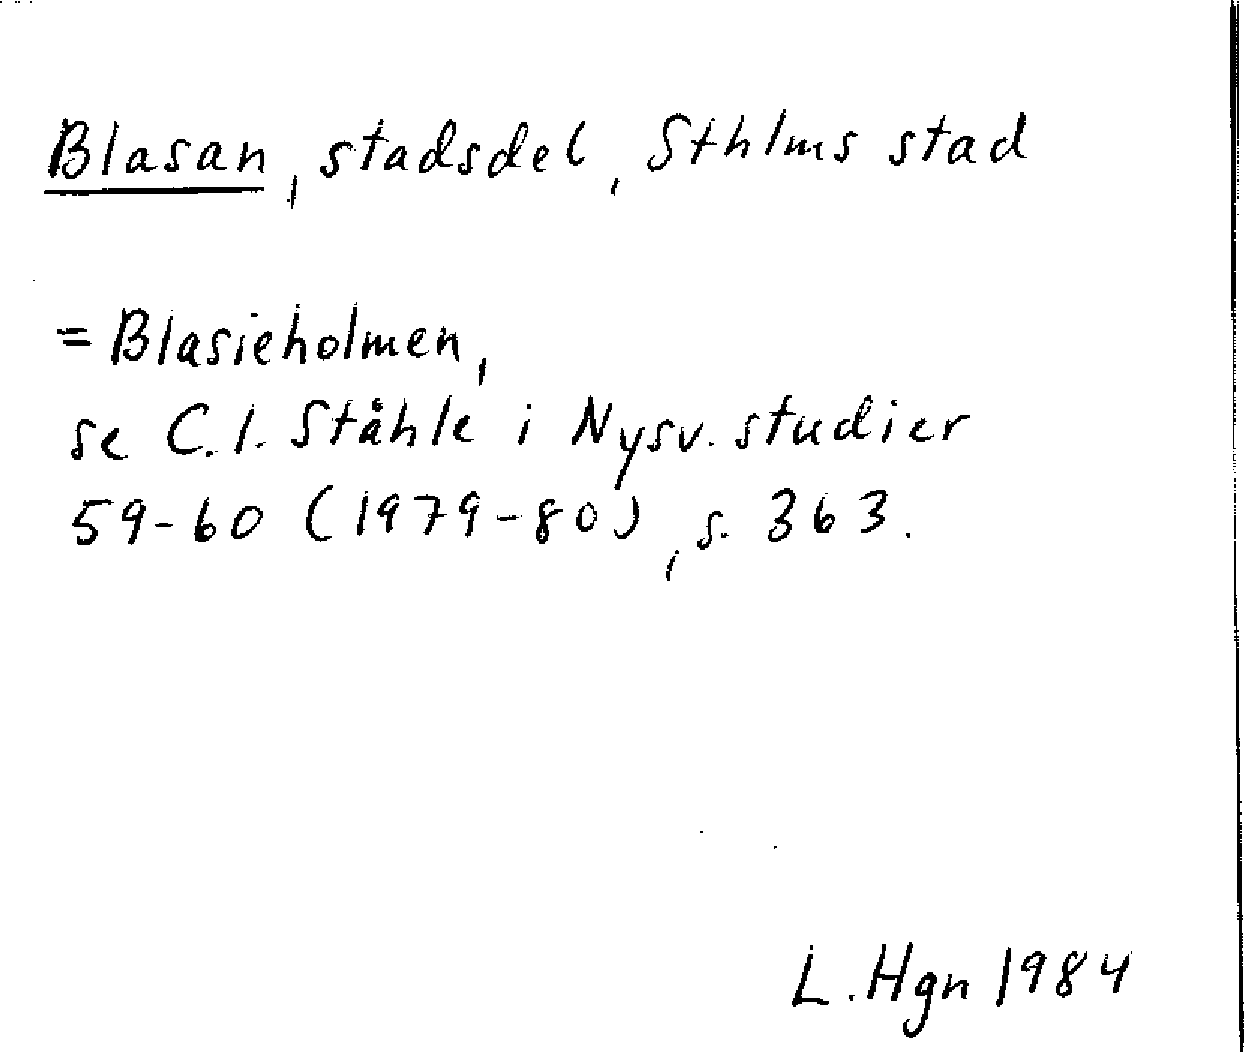 Blasan, stadsdel, Sthlms stad
= Blasieholmen,
se C.I. Ståhle i Nysv. studier
59-60 (1979-80), s. 363.
L. Hgn 1984